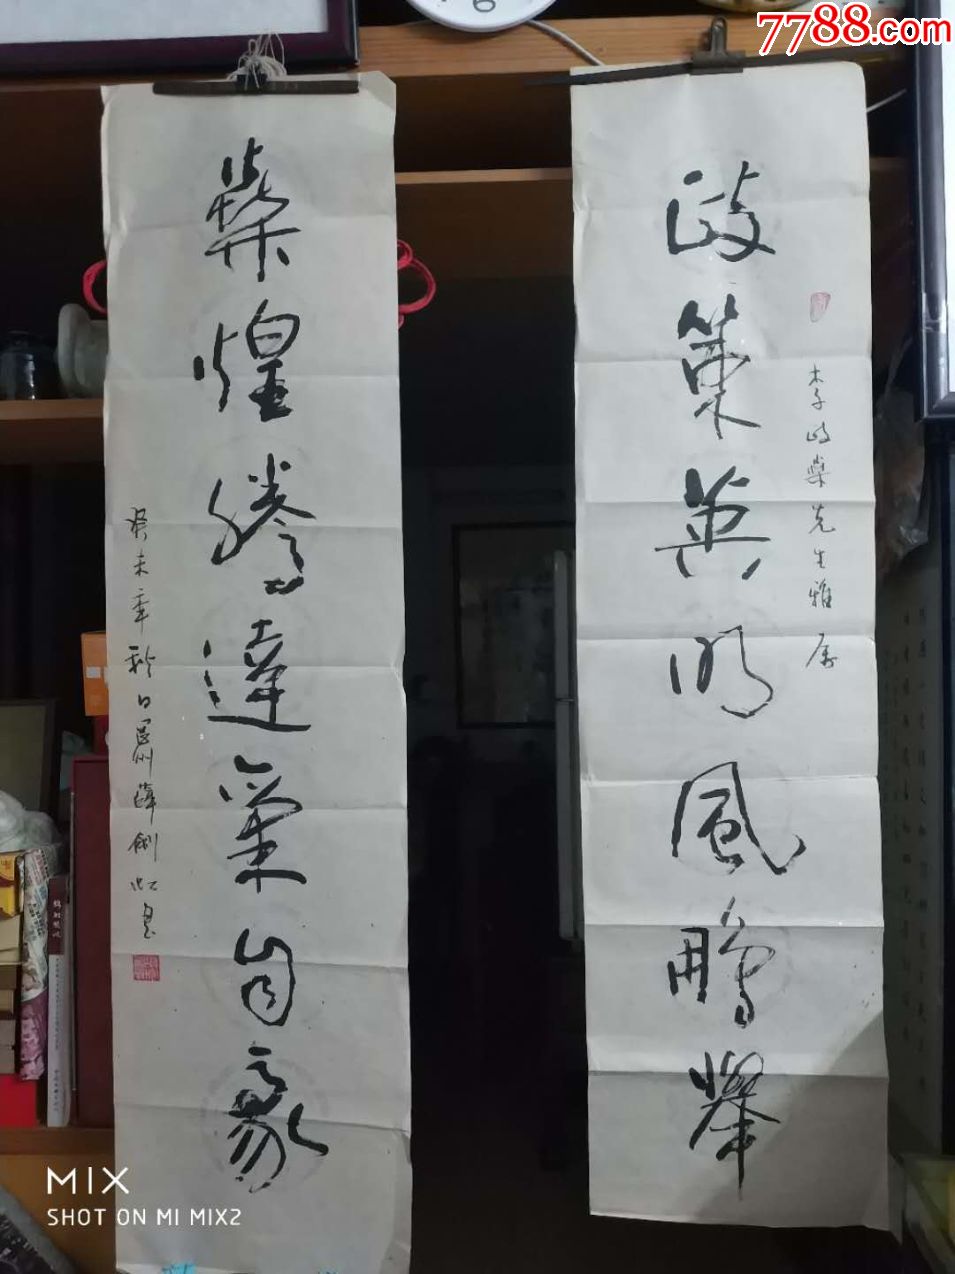 7788.com
政策英明風鵬舉
李政榮先生雅属
榮煌騰達氣自豪
癸未年秋日
MIX
SHOT ON MI MIX2